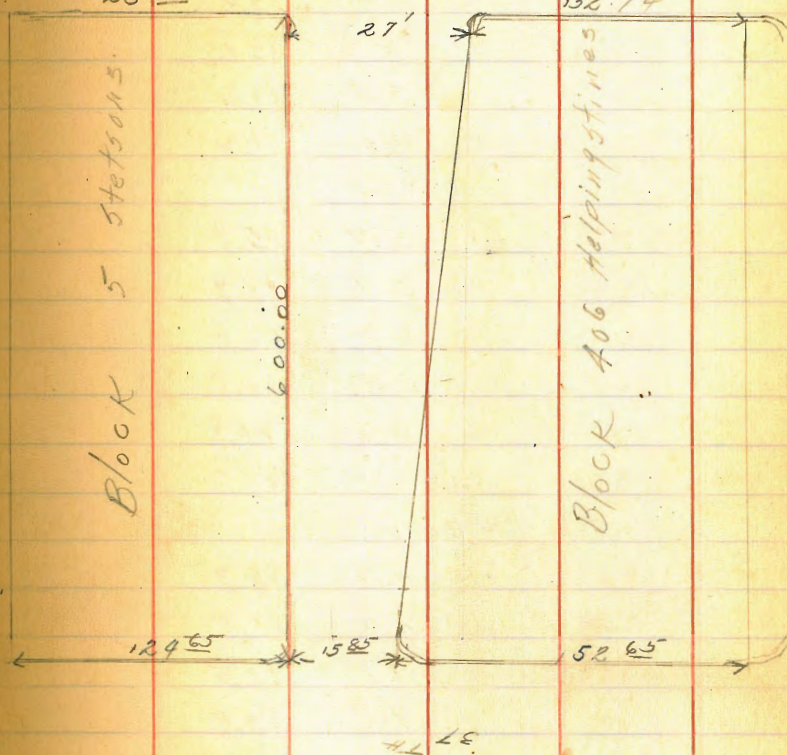 27'
Block 5 Stetsons.
600.00
Block 406 Helpingstines
124 65
15 85
152 65
37 TH